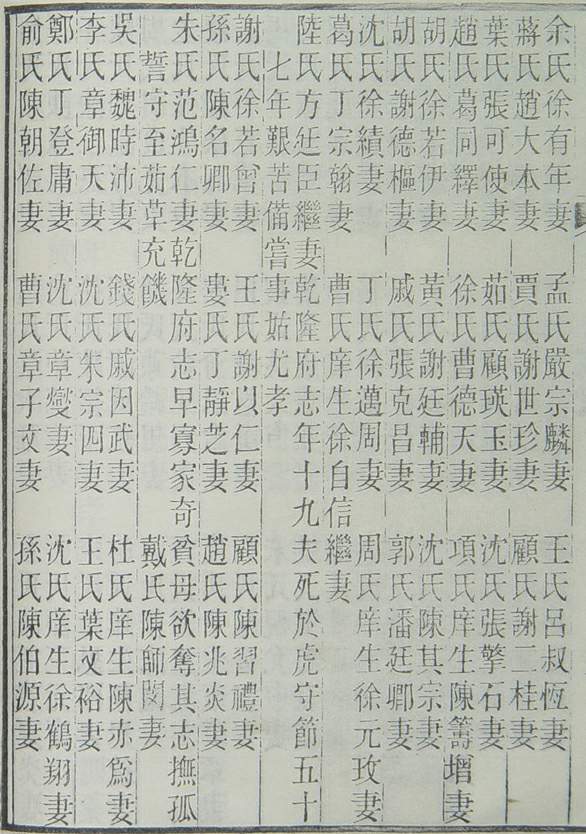 余氏徐有年妻 孟氏嚴宗麟妻 王氏呂叔恆妻
蔣氏趙大本妻 賈氏謝世珍妻 顧氏謝二桂妻
葉氏張可使妻 茹氏顧瑛玉妻 沈氏張擎石妻
趙氏葛同繹妻 徐氏曹德天妻 項氏庠生陳籌增妻
胡氏徐若伊妻 黃氏謝廷輔妻 沈氏陳其宗妻
胡氏謝德樞妻 戚氏張克呂妻 郭氏潘廷卿妻
沈氏徐績妻 丁氏徐邁周妻 周氏庠生徐元玫妻
葛氏丁宗翰妻 曹氏庠生徐自信繼妻
陸氏方廷臣繼妻乾隆府志年十九夫死於虎守節五十
七年艱苦備嘗事姑尤孝
謝氏徐若曾妻 王氏謝以仁妻 顧氏陳習禮妻
孫氏陳名卿妻 婁氏丁靜芝妻 趙氏陳兆炎妻
朱氏范鴻仁妻乾隆府志早寡家奇貧母欲奪其志撫孤
誓守至茹草充饑 戴氏陳師閔妻
吳氏魏時沛妻 錢氏戚因武妻 杜氏庠生陳赤爲妻
李氏章御天妻 沈氏朱宗四妻 王氏葉文裕妻
鄭氏丁登庸妻 沈氏章燮妻 沈氏庠生徐鶴翔妻
俞氏陳朝佐妻 曹氏章子文妻 孫氏陳伯源妻